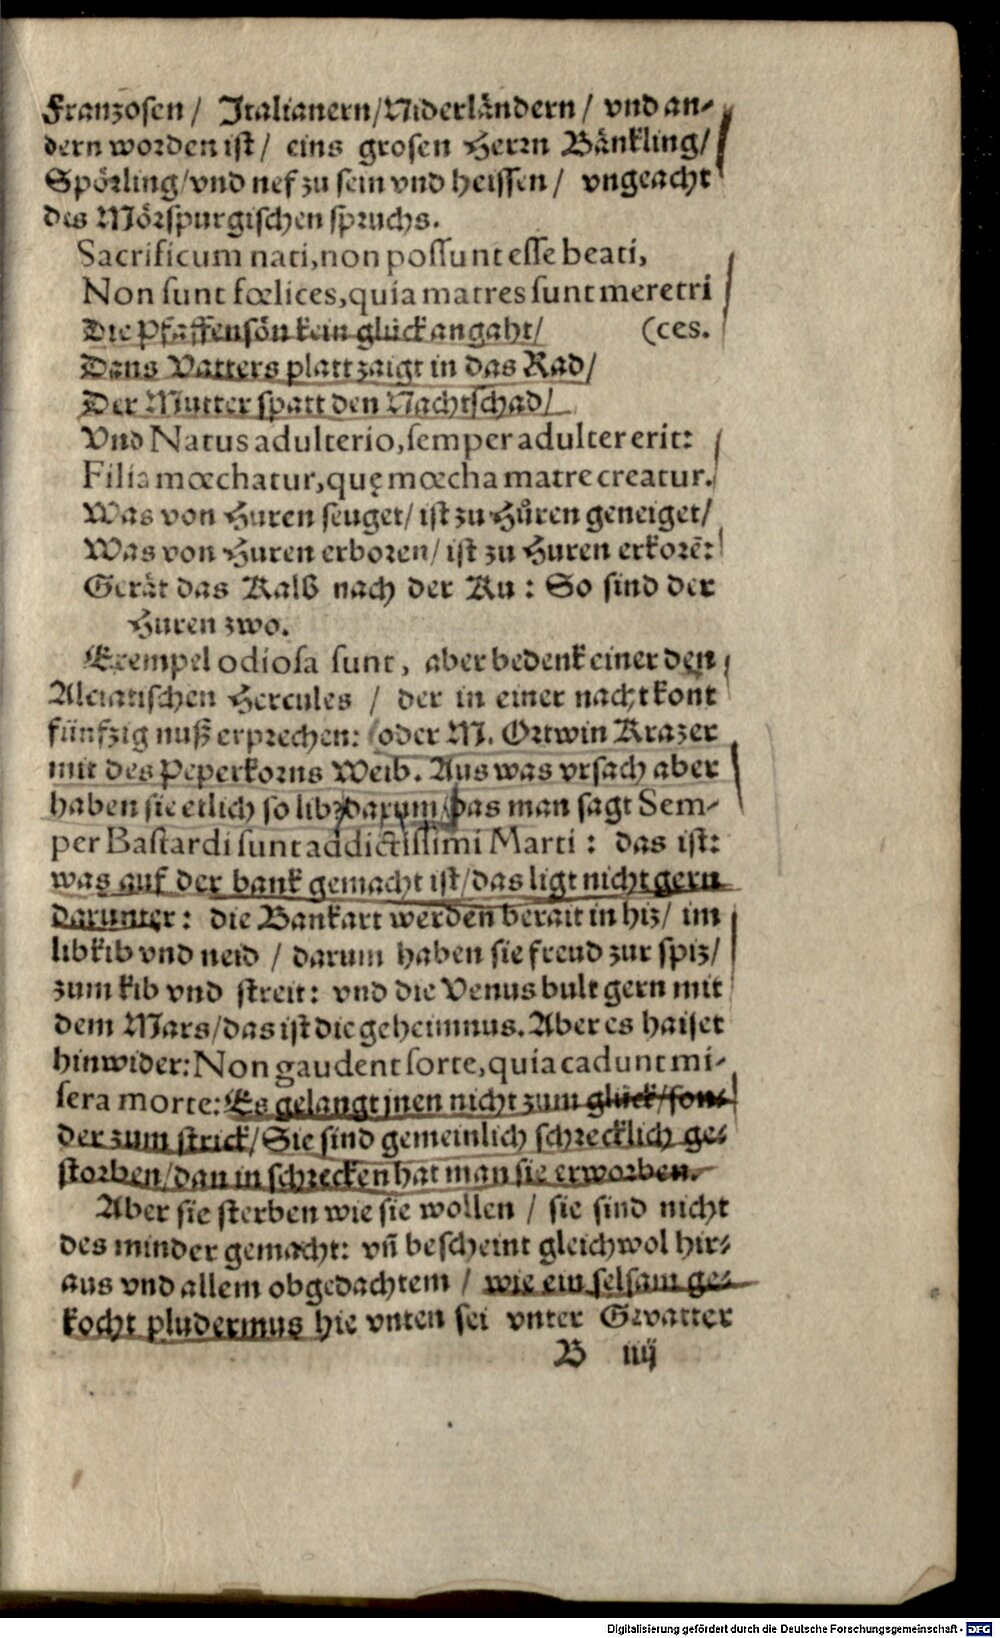 Franzosen/ Italianern/Niderländern/ vnd an-
dern worden ist/ eins grosen Herrn Bänkling/
Spörling/vnd nef zu sein vnd heissen/ vngeacht
des Mörspurgischen spruchs.
Sacrificum nati,non possunt esse beati,
Non sunt fœlices,quia matres sunt meretri
Die Pfaffensön kein glück angaht/ (ces.
Dans Vatters platt zaigt in das Rad/
Der Mutter spatt den Nachtschad/
Vnd Natus adulterio,semper adulter erit:
Filia mœchatur,quę mœcha matre creatur.
Was von Huren seuget/ ist zu Hůren geneiget/
Was von Huren erboren/ ist zu Huren erkorẽ:
Gerät das Kalb nach der Ku: So sind der
Huren zwo.
Exempel odiosa sunt, aber bedenk einer den
Alciatischen Hercules / der in einer nacht kont
fünfzig nuß erprechen: oder M. Ortwin Krazer
mit des Peperkorns Weib. Aus was vrsach aber
haben sie etlich so lib? darum/ das man sagt Sem-
per Bastardi sunt addictissimi Marti: das ist:
was auf der bank gemacht ist/das ligt nicht gern
darunter: die Bankart werden berait in hiz/ im
libkib vnd neid / darum haben sie freud zur spiz/
zum kib vnd streit: vnd die Venus bult gern mit
dem Mars/das ist die geheimnus. Aber es haiset
hinwider: Non gaudent sorte,quia cadunt mi-
sera morte: Es gelangt jnen nicht zum glück/son-
der zum strick/Sie sind gemeinlich schrecklich ge-
storben/dan in schrecken hat man sie erworben.
Aber sie sterben wie sie wollen / sie sind nicht
des minder gemacht: vñ bescheint gleichwol hir-
aus vnd allem obgedachtem / wie ein selsam ge-
kocht pludermus hie vnten sei vnter Gevatter
B iiij
Digitalisierung gefördert durch die Deutsche Forschungsgemeinschaft - DFG